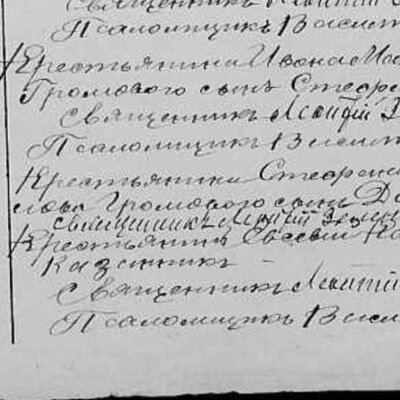 Священникъ Леонтій
Псаломщикъ Васил
Крестьянина Ивана Ма
Громового сынъ Стефа
Священникъ Леонтій З
Псаломщикъ Васил
Крестьянина Стефана
Громового сынъ
Священникъ Леонтій
Крестьянинъ Евсевій
Казанникъ
Священникъ Леонтій
Псаломщикъ Васил